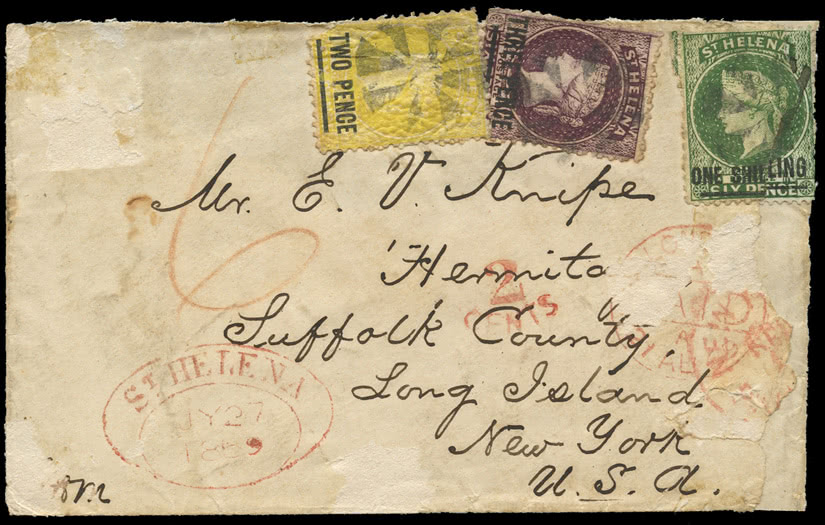 TWO PENCE
THREE PENCE
ST HELENA
ST HELENA
ONE SHILLING
SIX PENCE
6
Mr. E. V. Knipe
Hermito
2
CENTS
PAID
Suffolk County,
Long Island.
New York
U. S. A.
ST HELENA
JY 27
1869